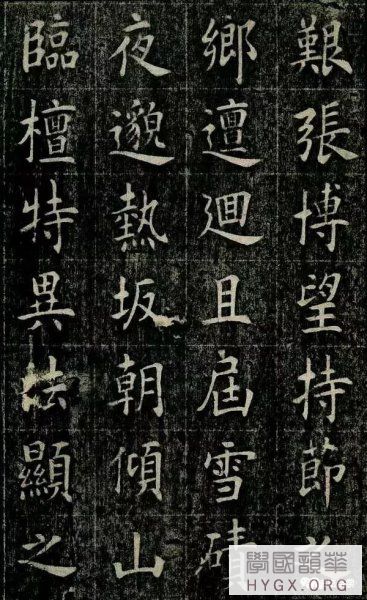 艱張博望持節
鄉邅迴且屆雪磧
夜邈熱坂朝傾山
臨檀特異法顯之
學國韻華
HYGX.ORG